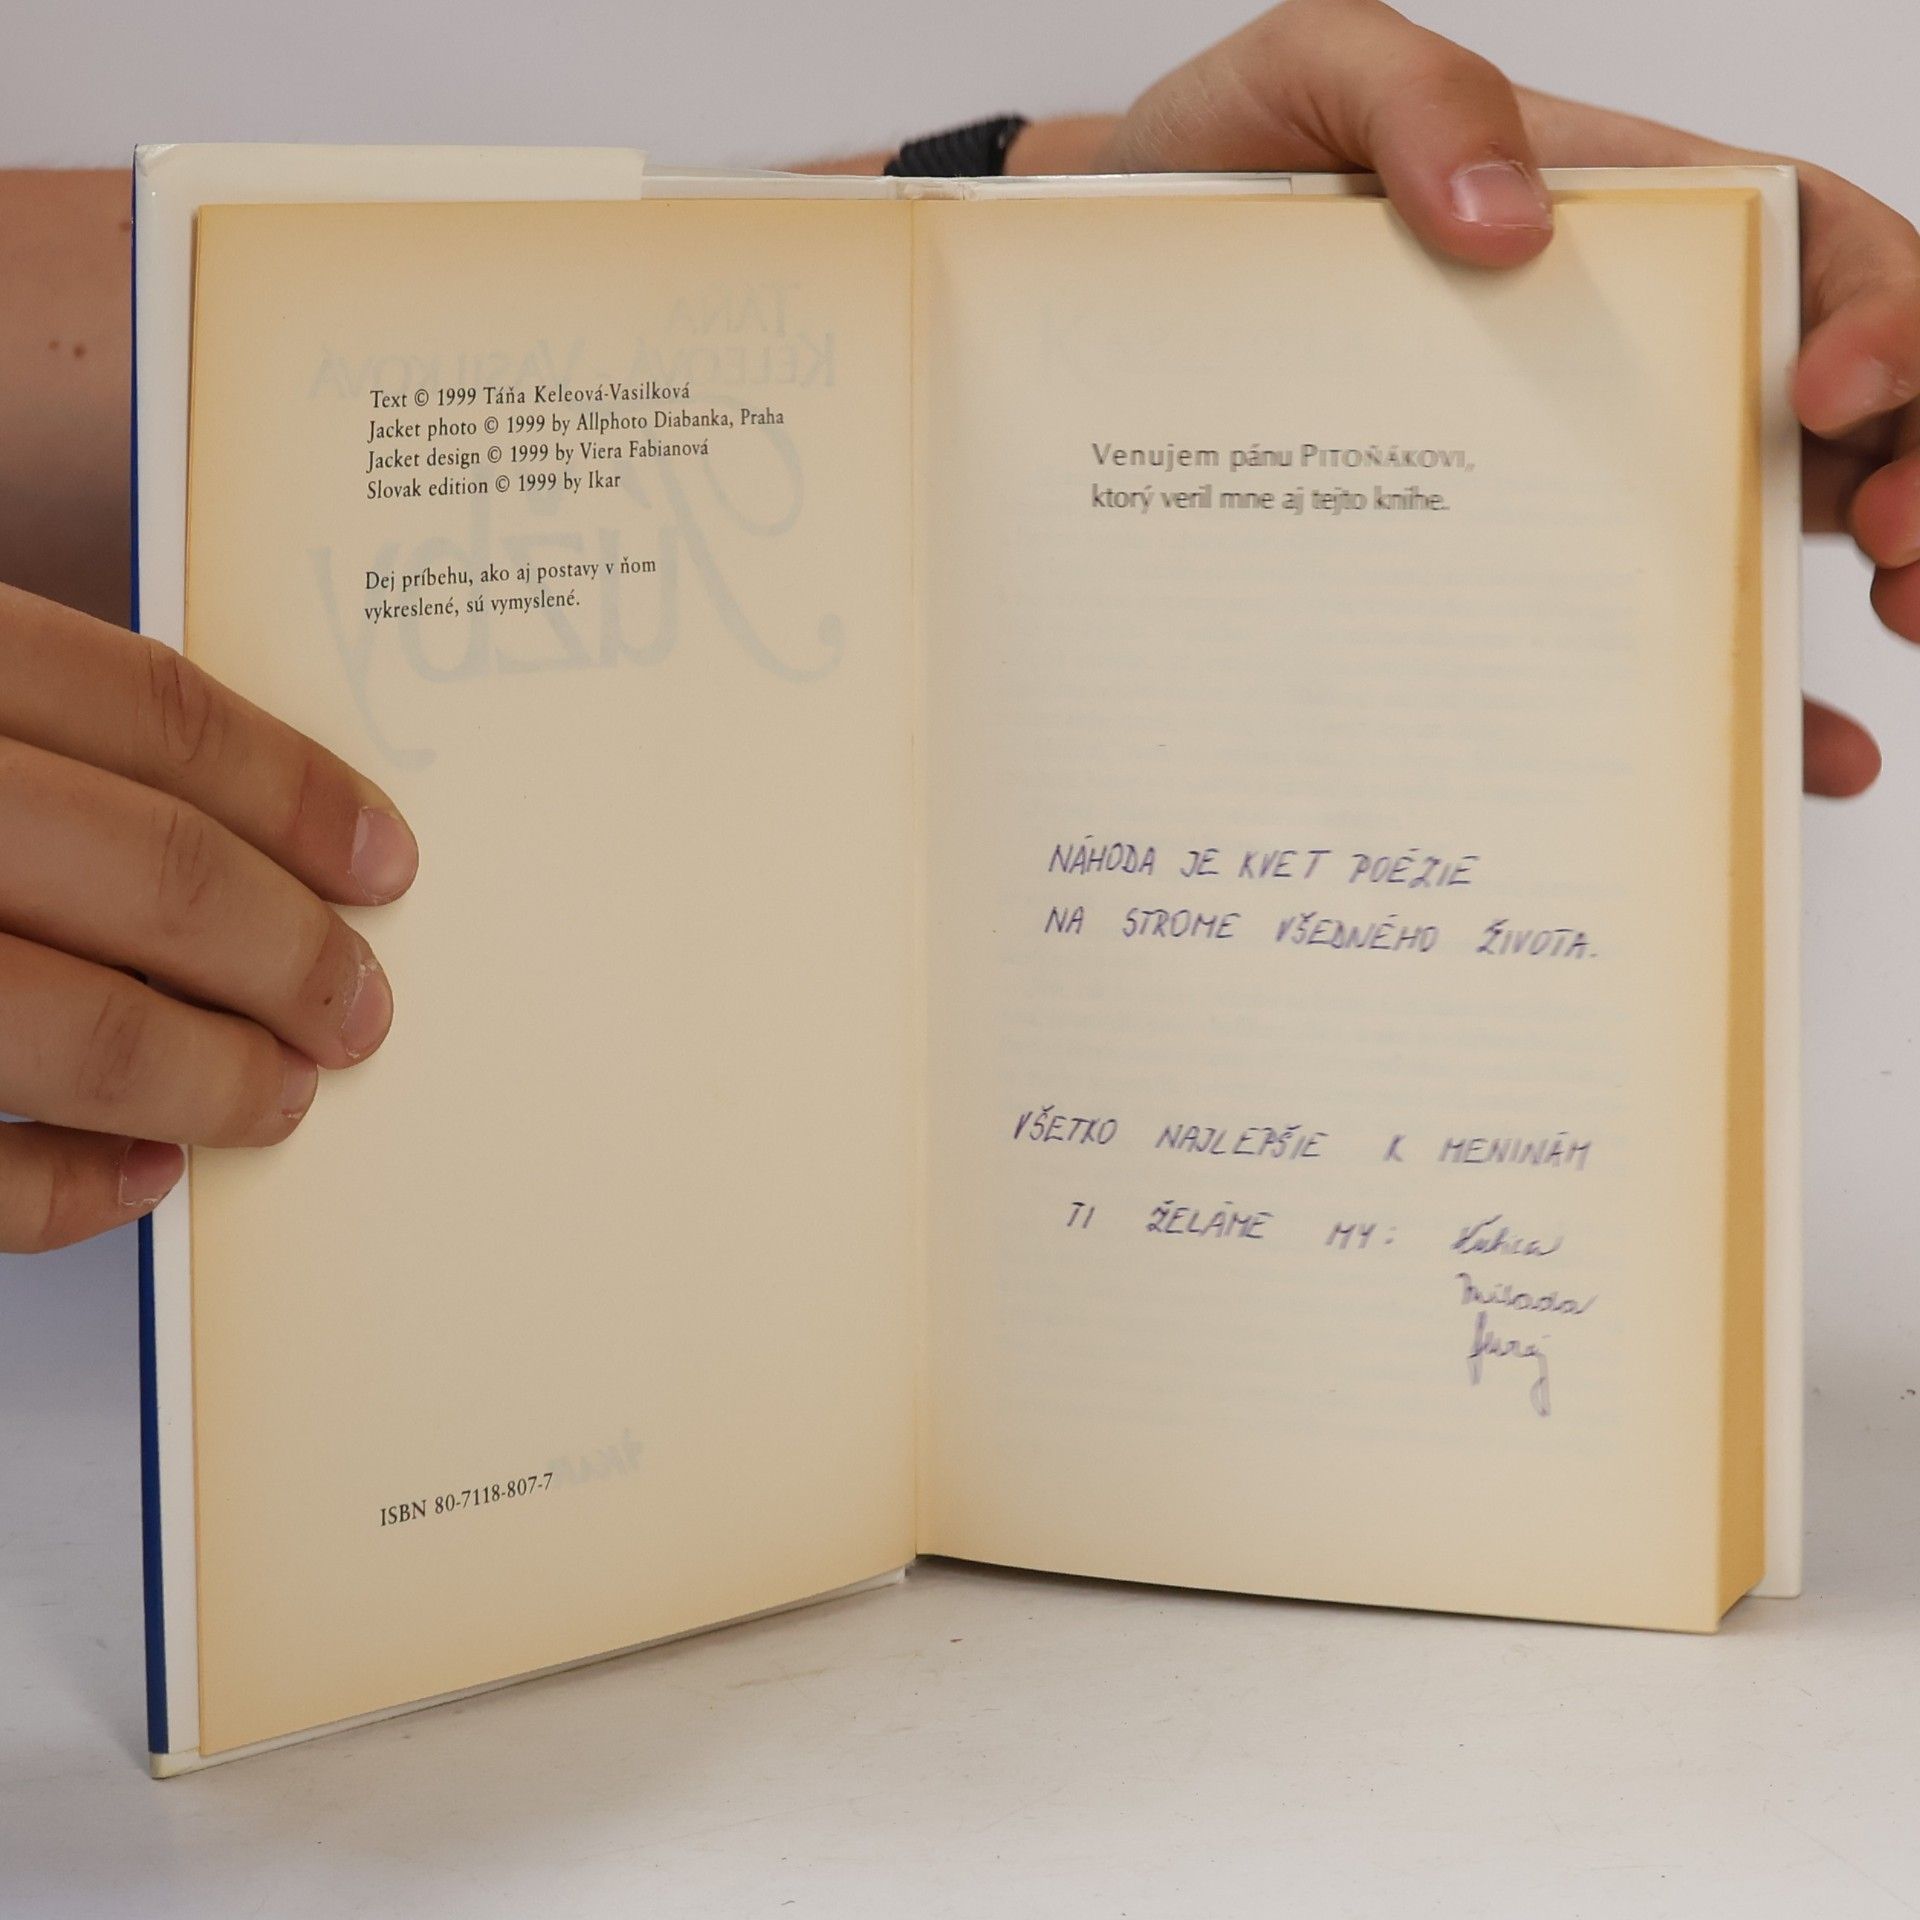 Text © 1999 Táňa Keleová-Vasilková
Jacket photo © 1999 by Allphoto Diabanka, Praha
Jacket design © 1999 by Viera Fabianová
Slovak edition © 1999 by Ikar
Dej príbehu, ako aj postavy v ňom
vykreslené, sú vymyslené.
ISBN 80-7118-807-7
Venujem pánu PITOŇÁKOVI,
ktorý veril mne aj tejto knihe.
NÁHODA JE KVET POÉZIE
NA STROME VŠEDNÉHO ŽIVOTA.
VŠETKO NAJLEPŠIE K MENINÁM
TI ŽELÁME MY:
Milada
Juraj